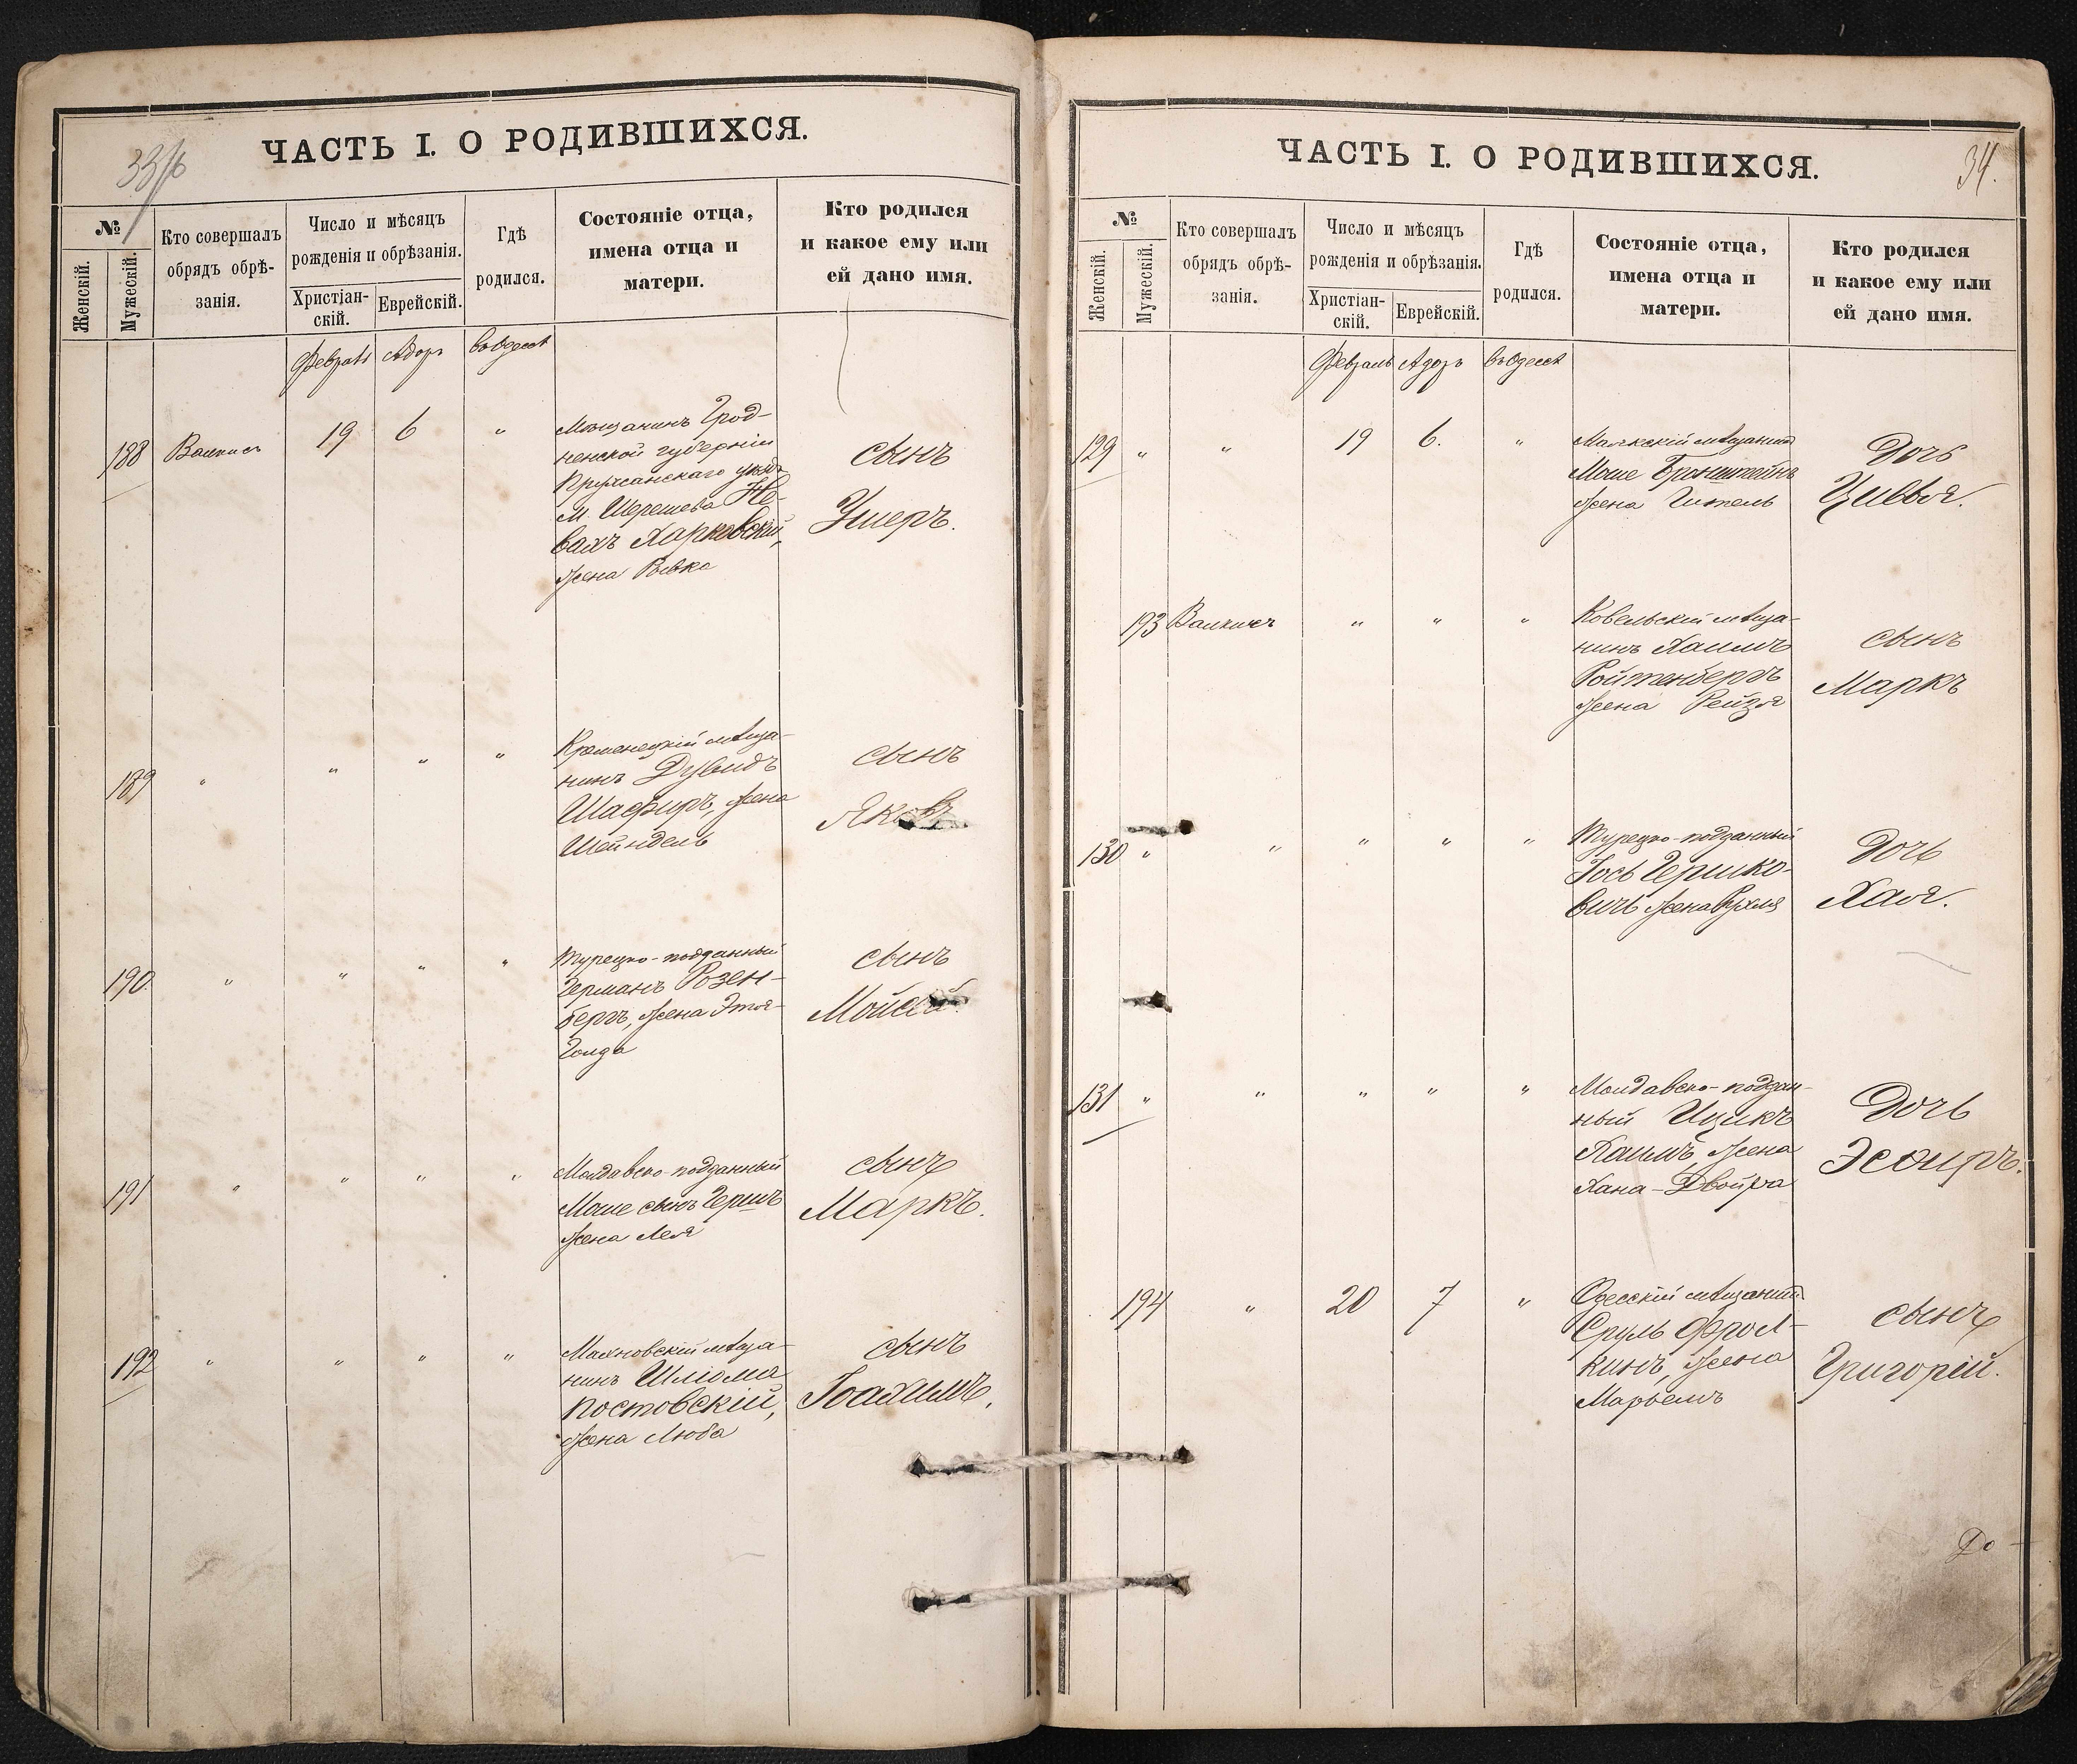 ЧАСТЬ I. О РОДИВШИХСЯ.
№
Женскій.
Мужескій.
Кто совершалъ
обрядъ обрѣ-
занія.
Число и мѣсяцъ
рожденія и обрѣзанія.
Христіан-
скій.
Еврейскій.
Гдѣ
родился.
Состояніе отца,
имена отца и
матери.
Кто родился
и какое ему или
ей дано имя.
Февраль Адоръ въ Одессѣ
188 19 6 "
Мѣщанинъ Грод-
ненской губерніи
Пружанскаго уѣзда
м. Шерешева Не-
вахъ Харковскій,
жена Ривка
сынъ
Ушеръ.
189 " " " "
Кременецкій мѣща-
нинъ Дувидъ
Шафиръ, жена
Шейндель
сынъ
Яковъ
190 " " " "
Турецко-подданный
Германъ Розен-
бергъ, жена Этля-
Голда
сынъ
Мойсей.
191 " " " "
Молдавско-подданный
Моше сынъ Гершъ
жена Лея
сынъ
Маркъ.
192 " " " "
Махновскій мѣща-
нинъ Шліома
Постовскій,
жена Люба
сынъ
Іоахимъ.
34.
ЧАСТЬ I. О РОДИВШИХСЯ.
№
Женскій.
Мужескій.
Кто совершалъ
обрядъ обрѣ-
занія.
Число и мѣсяцъ
рожденія и обрѣзанія.
Христіан-
скій.
Еврейскій.
Гдѣ
родился.
Состояніе отца,
имена отца и
матери.
Кто родился
и какое ему или
ей дано имя.
Февраль Адоръ въ Одессѣ
129 " " 19 6. "
мѣщанинъ
Моше Бронштейнъ
жена Гитель
Дочь
Цивья.
193 " " "
Ковельскій мѣща-
нинъ Хаимъ
Ройтенбергъ
жена Рейзя
сынъ
Маркъ
130 " " " " "
Турецко-подданный
Іось Гершко-
вичъ жена Рухля
Дочь
Хая.
131 " " " " "
Молдавско-поддан-
ный Ицикъ
Хаимъ жена
Хана-Двойра
Дочь
Эсѳирь.
194 " 20 7 "
Одесскій мѣщанинъ
Сруль Фрол-
кинъ, жена
Марьемъ
сынъ
Григорій.
До-